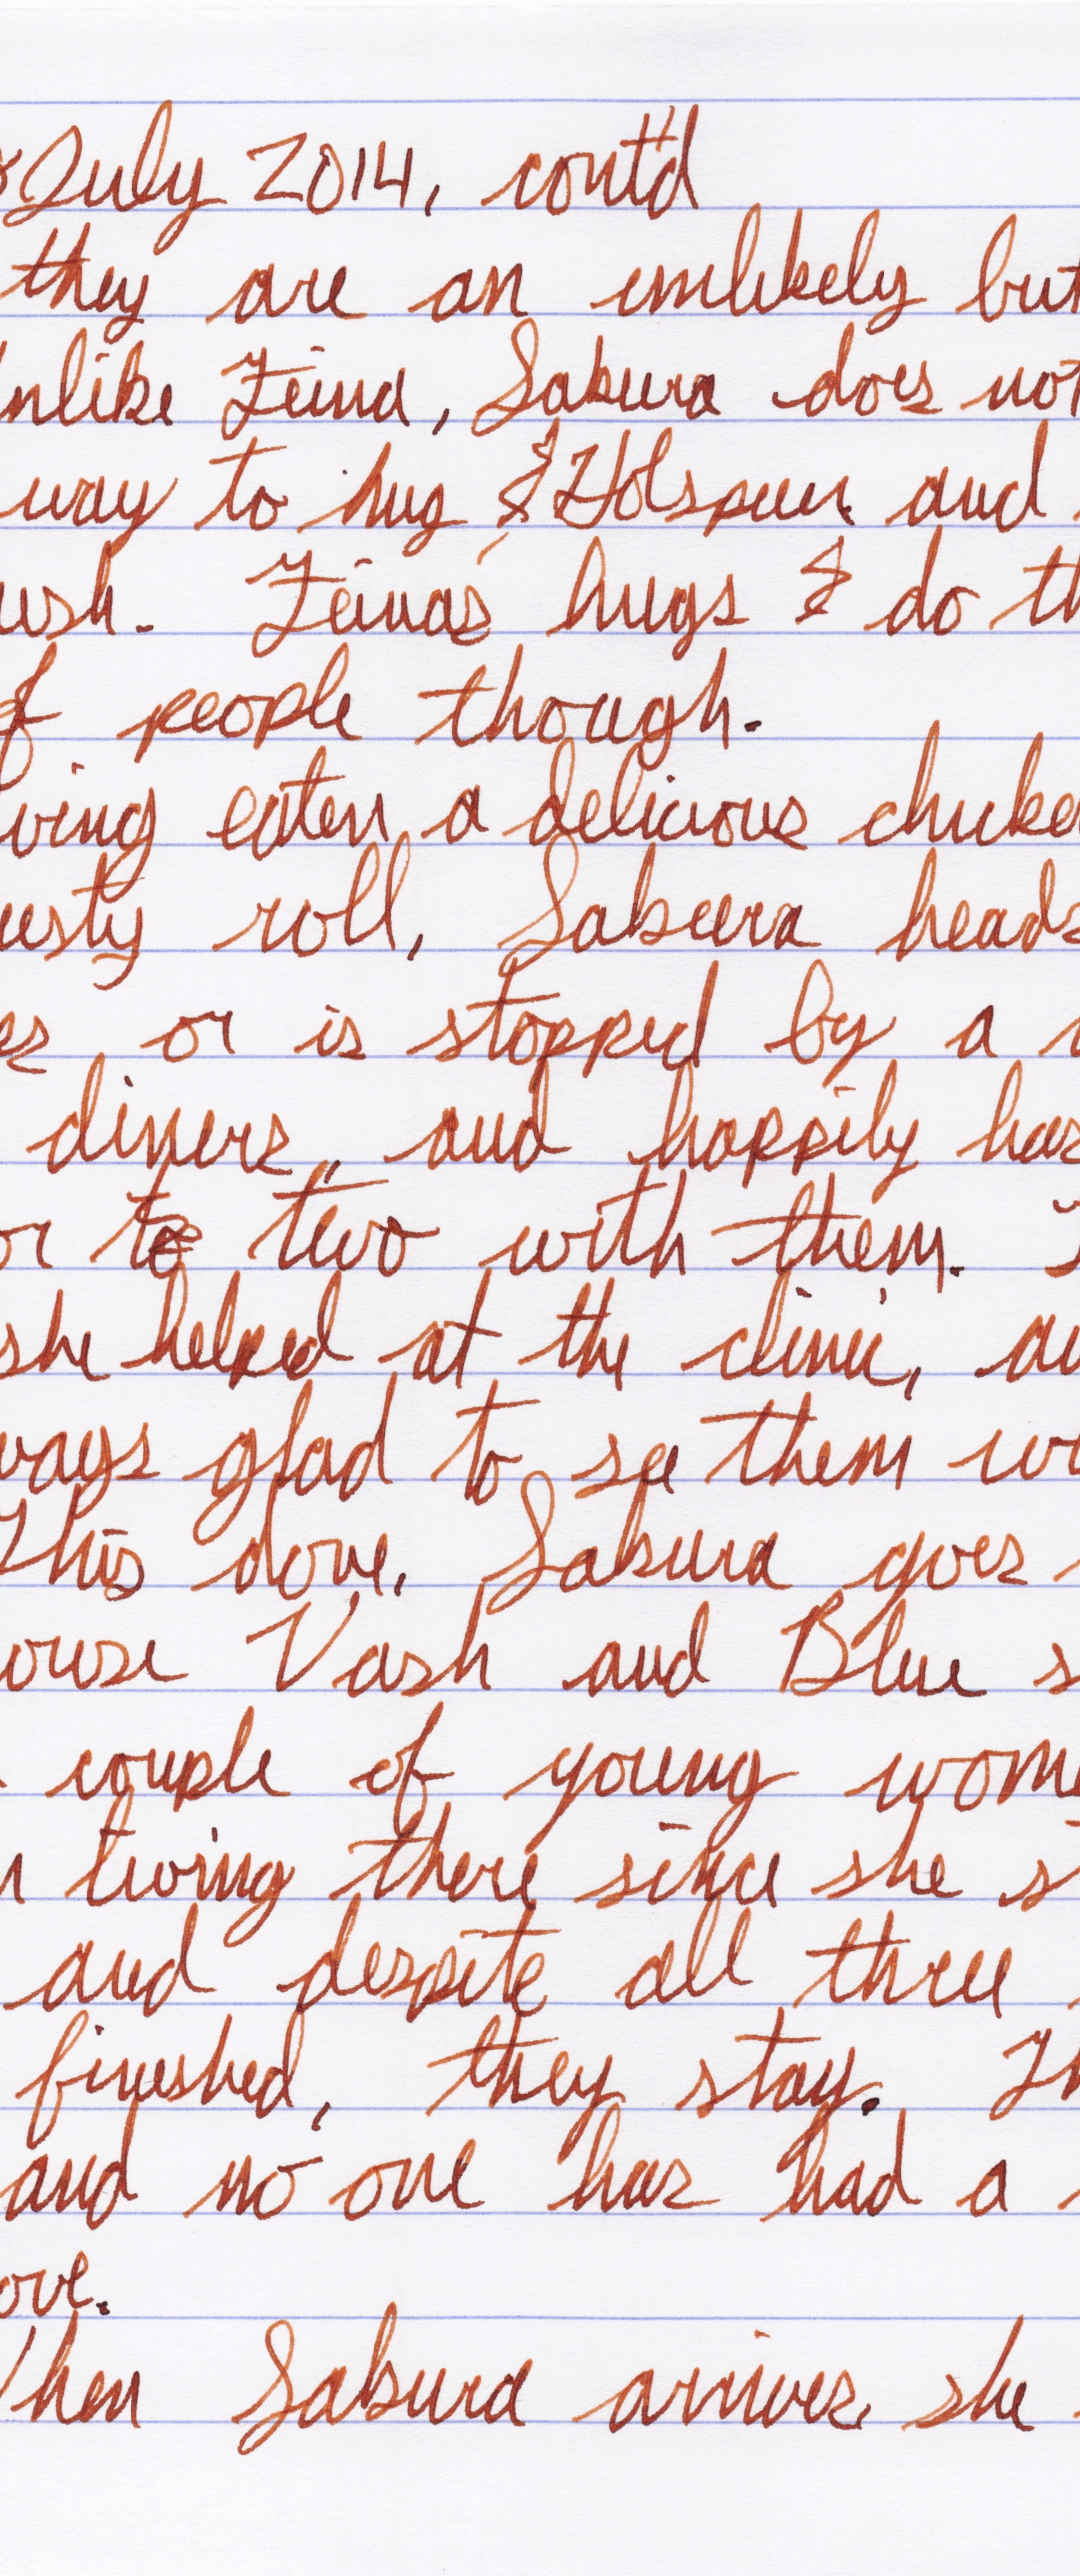 July 2014, cont'd
they are an unlikely but
nlike Zeina, Sakura does not
way to hug and
ush. Zeina's hugs do th
of people though.
ving eaten a delicious chicke
usty roll, Sakura heads
es or is stopped by a
diners, and happily has
or to two with them.
she helped at the clinic, an
ways glad to see them
This done, Sakura goes
ouse Vash and Blue s
couple of young wome
living there since she st
and despite all three
finished, they stay. Th
and no one has had a
ove.
hen Sakura arrives, she